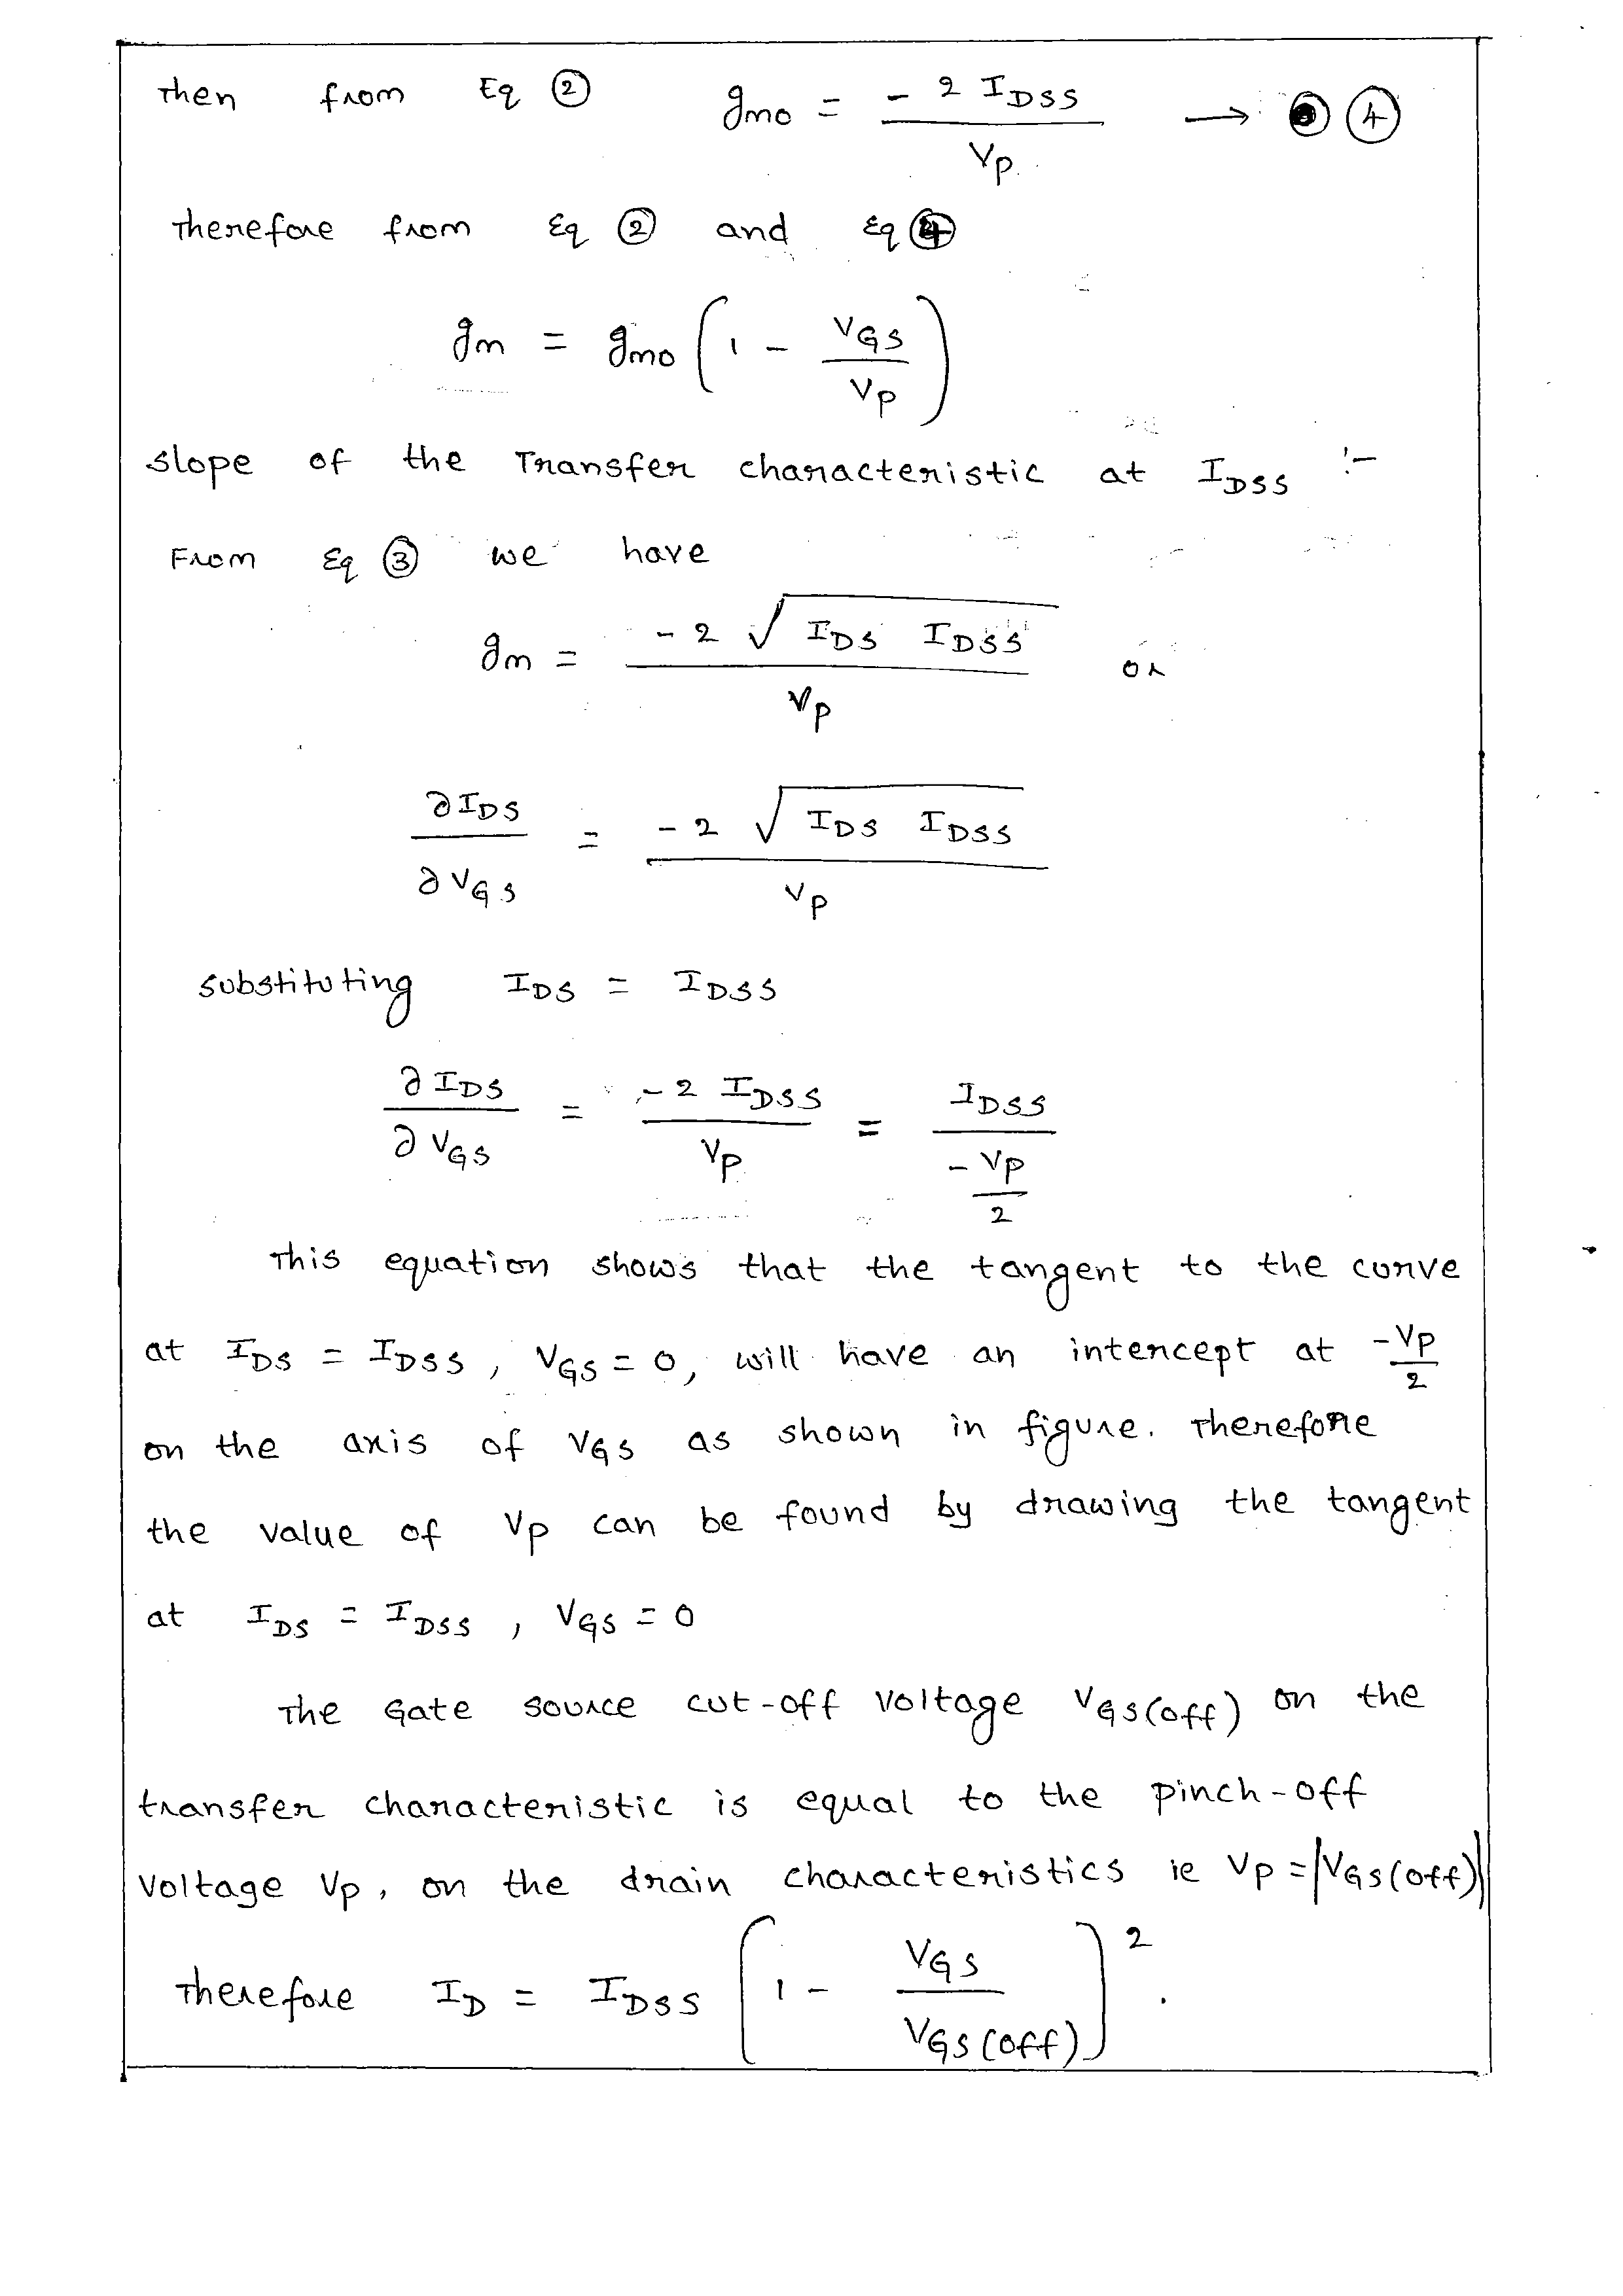 Then from Eq ② gmo = - 2 IDSS / Vp → ④
Therefore from Eq ② and Eq ④
gm = gmo ( 1 - VGS / Vp )
slope of the Transfer characteristic at IDSS :-
From Eq ③ we have
gm = - 2 √ IDS IDSS / Vp or
∂IDS / ∂VGS = - 2 √ IDS IDSS / Vp
substituting IDS = IDSS
∂IDS / ∂VGS = - 2 IDSS / Vp = IDSS / - Vp / 2
This equation shows that the tangent to the curve
at IDS = IDSS , VGS = 0, will have an intercept at - Vp / 2
on the axis of VGS as shown in figure. Therefore
the value of Vp can be found by drawing the tangent
at IDS = IDSS , VGS = 0
The Gate source cut-off voltage VGS(off) on the
transfer characteristic is equal to the pinch-off
voltage Vp, on the drain characteristics ie Vp = |VGS(off)|
Therefore ID = IDSS [ 1 - VGS / VGS(off) ]² .